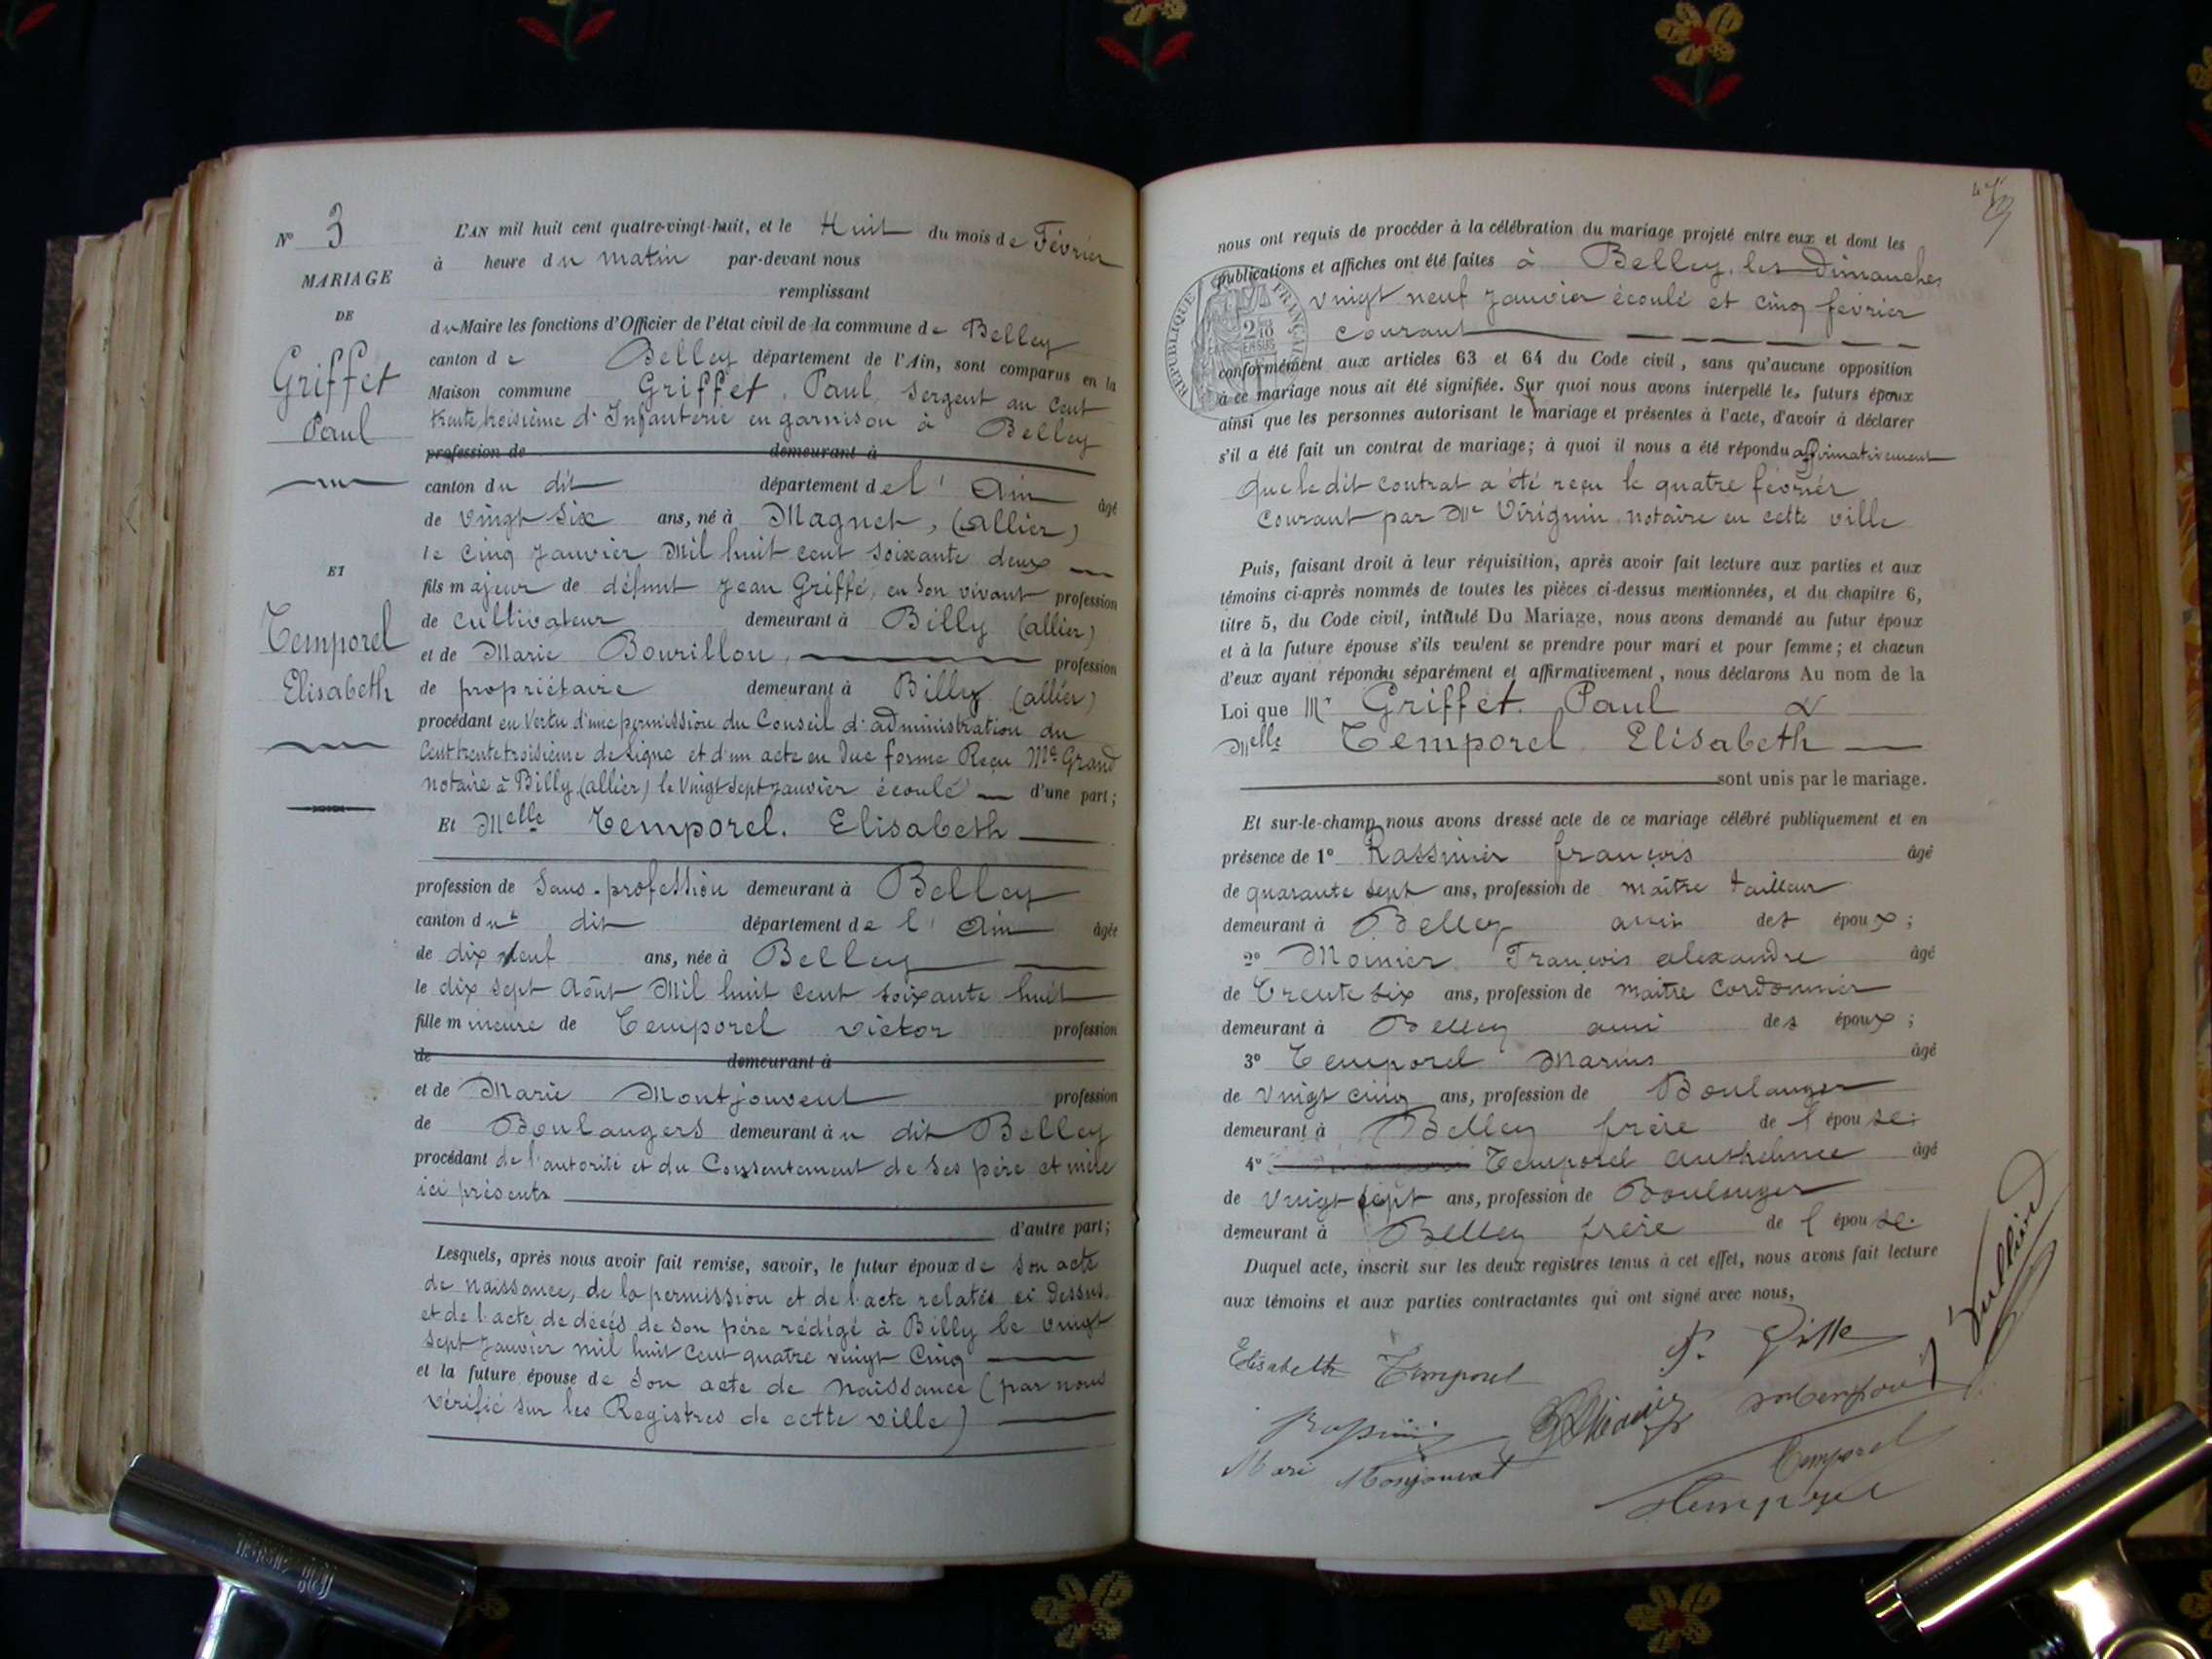 N° 3
MARIAGE
DE
Griffet
Paul
ET
Temporel
Elisabeth
L'AN mil huit cent quatre-vingt-huit, et le Huit du mois de Février
à heure du matin par-devant nous
remplissant
du Maire les fonctions d'Officier de l'état civil de la commune de Belley
canton de Belley département de l'Ain, sont comparus en la
Maison commune Griffet, Paul, Sergent au Cent
trente troisième d'Infanterie en garnison à Belley
profession de demeurant à
canton du dit département de l'Ain âgé
de Vingt Six ans, né à Magnet, (Allier)
le cinq Janvier Mil huit cent soixante deux
fils majeur de défunt Jean Griffé, en son vivant profession
de Cultivateur demeurant à Billy (allier)
et de Marie Bourillon, profession
de propriétaire demeurant à Billy (allier)
procédant en Vertu d'une permission du Conseil d'administration du
Cent trente troisième de Ligne et d'un acte en due forme Reçu Me Grand
notaire à Billy (allier) le Vingt sept Janvier écoulé d'une part;
Et Melle Temporel. Elisabeth
profession de Sans-profession demeurant à Belley
canton du dit département de l'Ain âgée
de dix Neuf ans, née à Belley
le dix sept Août Mil huit cent soixante huit
fille mineure de Temporel victor profession
de demeurant à
et de Marie Montjouvent profession
de Boulangers demeurant à u dit Belley
procédant de l'autorité et du Consentement de ses père et mère
ici présents
d'autre part;
Lesquels, après nous avoir fait remise, savoir, le futur époux de son acte
de naissance, de la permission et de l'acte relatés ci dessus.
et de l'acte de décès de son père rédigé à Billy le vingt
sept Janvier mil huit cent quatre vingt Cinq
et la future épouse de son acte de naissance (par nous
vérifié sur les Registres de cette ville)
nous ont requis de procéder à la célébration du mariage projeté entre eux et dont les
publications et affiches ont été faites à Belley, les Dimanches
vingt neuf Janvier écoulé et cinq février
courant
conformément aux articles 63 et 64 du Code civil, sans qu'aucune opposition
à ce mariage nous ait été signifiée. Sur quoi nous avons interpellé les futurs époux
ainsi que les personnes autorisant le mariage et présentes à l'acte, d'avoir à déclarer
s'il a été fait un contrat de mariage; à quoi il nous a été répondu affirmativement
que le dit contrat a été reçu le quatre février
courant par Me Virignin notaire en cette ville
Puis, faisant droit à leur réquisition, après avoir fait lecture aux parties et aux
témoins ci-après nommés de toutes les pièces ci-dessus mentionnées, et du chapitre 6,
titre 5, du Code civil, intitulé Du Mariage, nous avons demandé au futur époux
et à la future épouse s'ils veulent se prendre pour mari et pour femme; et chacun
d'eux ayant répondu séparément et affirmativement, nous déclarons Au nom de la
Loi que Mr Griffet. Paul &
Melle Temporel Elisabeth
sont unis par le mariage.
Et sur-le-champ nous avons dressé acte de ce mariage célébré publiquement et en
présence de 1° Rassinier françois âgé
de quarante sept ans, profession de maître tailleur
demeurant à Belley ami des époux;
2° Moinier François alexandre âgé
de Trente six ans, profession de maître Cordonnier
demeurant à Belley ami des époux;
3° Temporel Marius âgé
de vingt cinq ans, profession de Boulanger
demeurant à Belley frère de l'épouse.
4° Temporel Anthelme âgé
de vingt sept ans, profession de Boulanger
demeurant à Belley frère de l'épouse.
Duquel acte, inscrit sur les deux registres tenus à cet effet, nous avons fait lecture
aux témoins et aux parties contractantes qui ont signé avec nous,
Elisabeth Temporel
Temporel